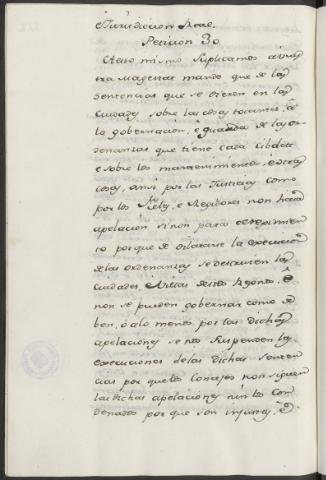 Jurisdiccion Real.
Peticion 30
Otro mismo suplicamos a vues
tra Magestad mande que de las
sentencias que se dieren en las
ciudades sobre las cosas tocantes â
la gobernacion, e guarda de las or
denanzas que tiene cada Cibdad
e sobre los mantenimientos e otras
cosas, ansi por las Justicias como
por los Fieles, e Regidores non haia
apelacion si non para
to porque de dilatarse la execucion
de las ordenanzas se destruien las
ciudades, è villas destos Regnos, ê
non se pueden gobernar como de
ben, ò alo menos por las dichas
apelaciones se non suspendan las
execuciones delas dichas senten
cias por que los Concejos non siguen
las dichas apelaciones nin los con
denados por que son injustas, ê